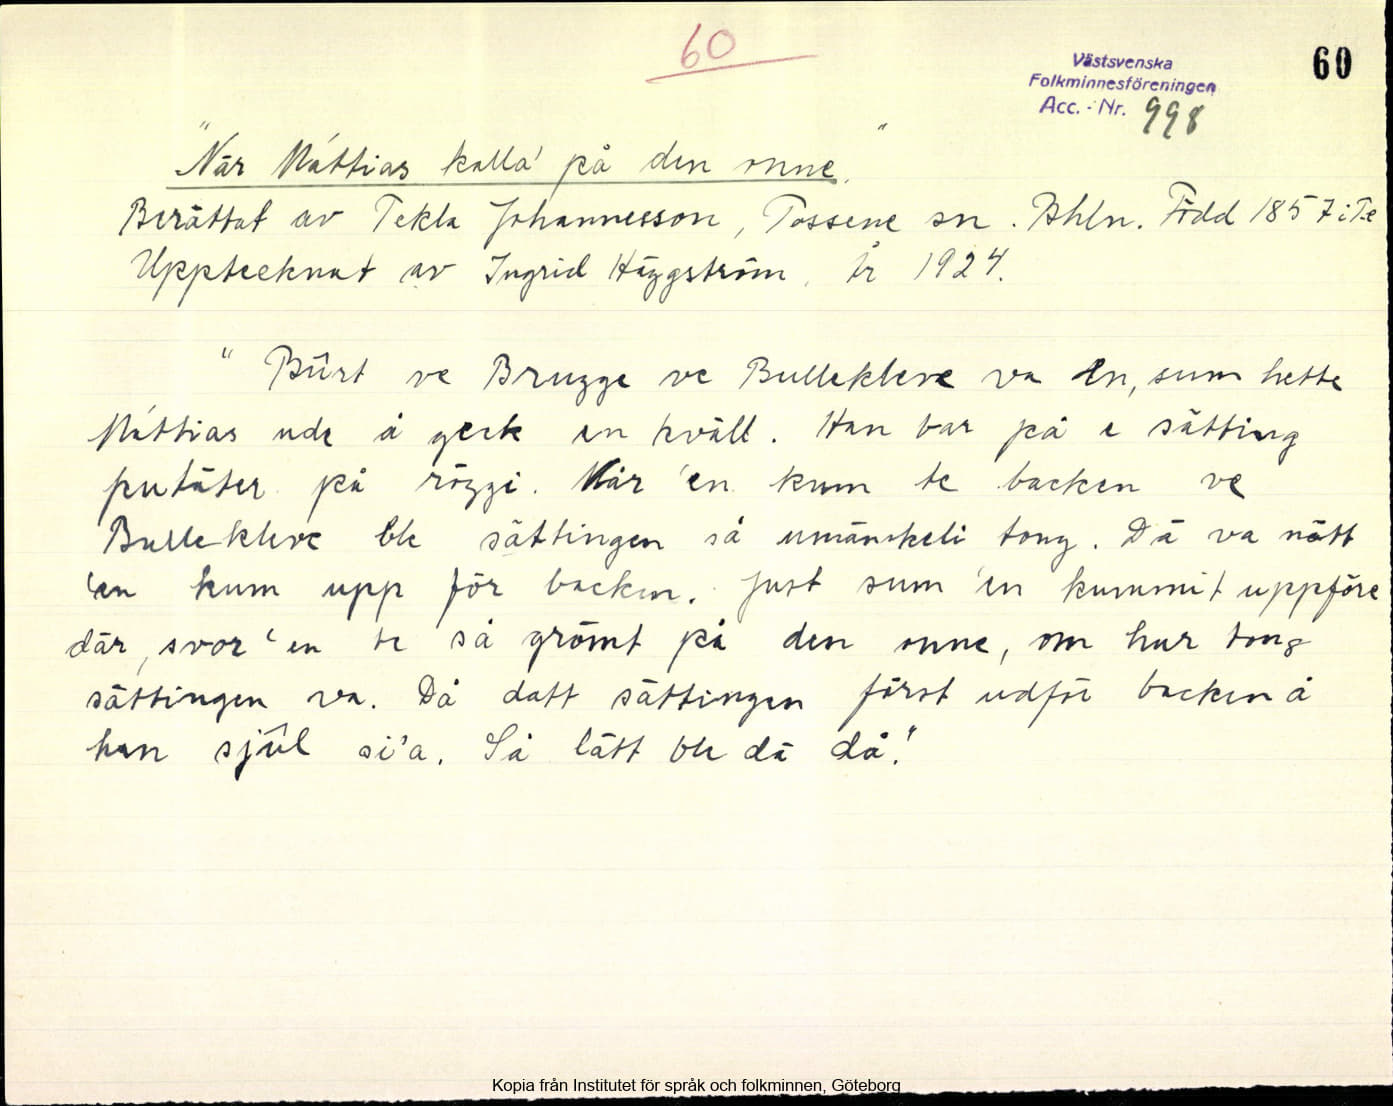 60
Västsvenska
Folkminnesföreningen
Acc. - Nr. 998
60
"När Máttias kalla' på den onne."
Berättat av Tekla Johannesson, Tossene sn. Bhln. Född 1857 i T-e
Upptecknat av Ingrid Häggström, år 1924.
"Bûrt ve Brugge ve Bullekleve va en, sum hette
Máttias ude å geck en kväll. Han bar på e sätting
putäter på röggi. När 'en kum te backen ve
Bullekleve ble sättingen så umänskeli tong. Dä va nätt
'en kum upp för backen. Just sum 'en kummit uppföre
där, svor 'en te så grömt på den onne, om hur tong
sättingen va. Då datt sättingen först udför backen å
han sjûl si'a. Så lätt ble dä då."
Kopia från Institutet för språk och folkminnen, Göteborg